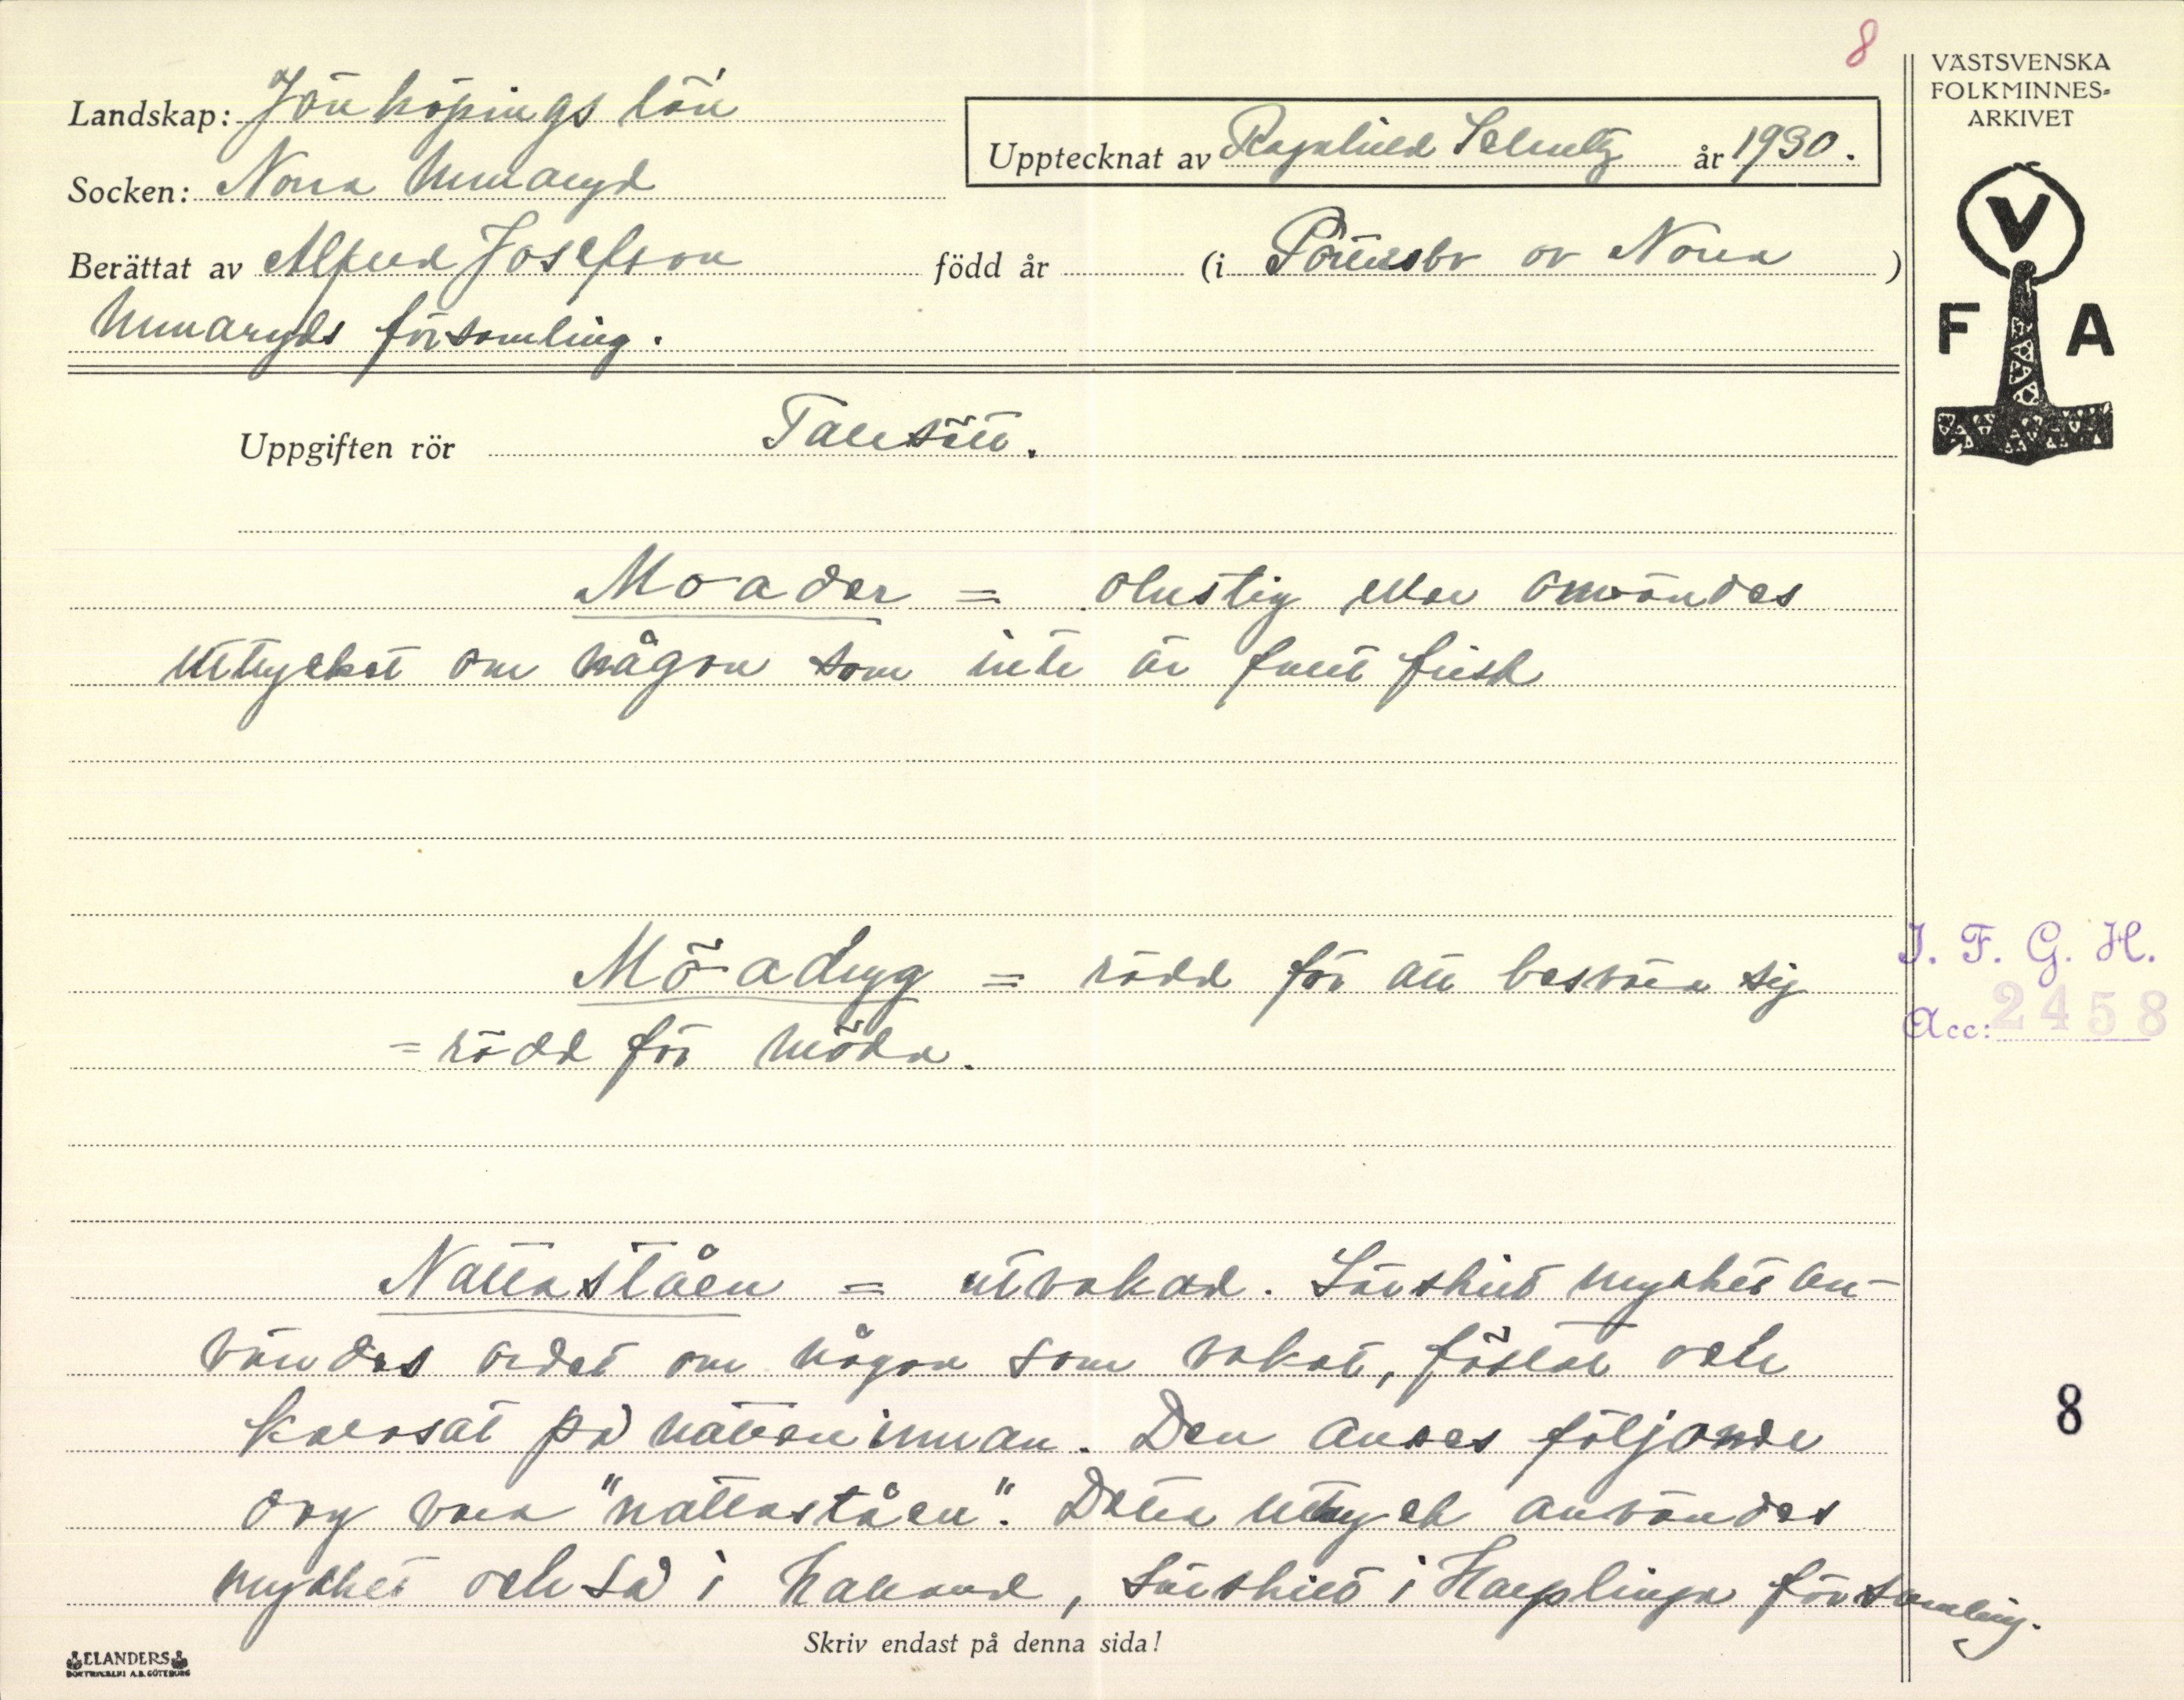 8
VÄSTSVENSKA
FOLKMINNES-
ARKIVET
Landskap: Jönköpings län
Upptecknat av Ragnhild Schultz år 1930.
Socken: Norra Unnaryd
Berättat av Alfred Josefson född år (i av Norra )
Unnaryds församling.
V
F A
Uppgiften rör Talesätt.
Moader = olustig eller användes
uttrycket om någon som inte är fullt frisk
Möadryg = rädd för att besvära sig
= rädd för möda.
I. F. G. H.
Acc: 2458
Nattaståen = utvakad. Särskilt mycket an-
vändes ordet om någon som vakat, och
på natten innan. Den anses följande
dag vara "nattaståen". Detta uttryck användes
mycket också i Halland, särskilt i Harplinge församling.
8
Skriv endast på denna sida!
ELANDERS
BOKTRYCKERI A.B. GÖTEBORG